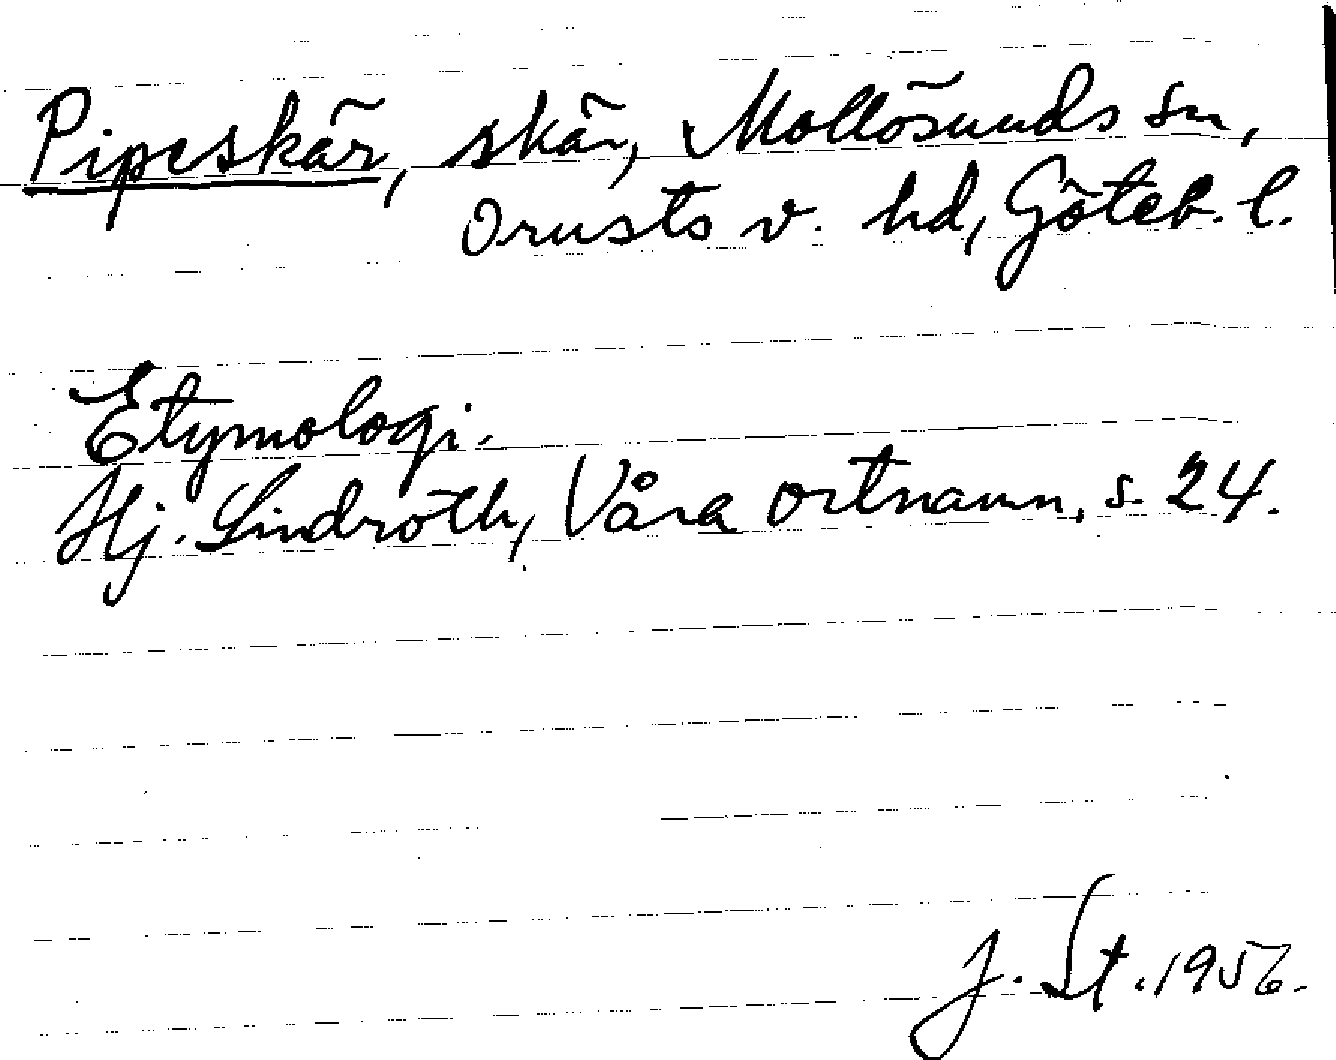 Pipeskär, skär, Mollösunds sn,
Orusts v. hd, Göteb. l.
Etymologi.
Hj. Lindroth, Våra ortnamn, s. 24.
J. St. 1956.